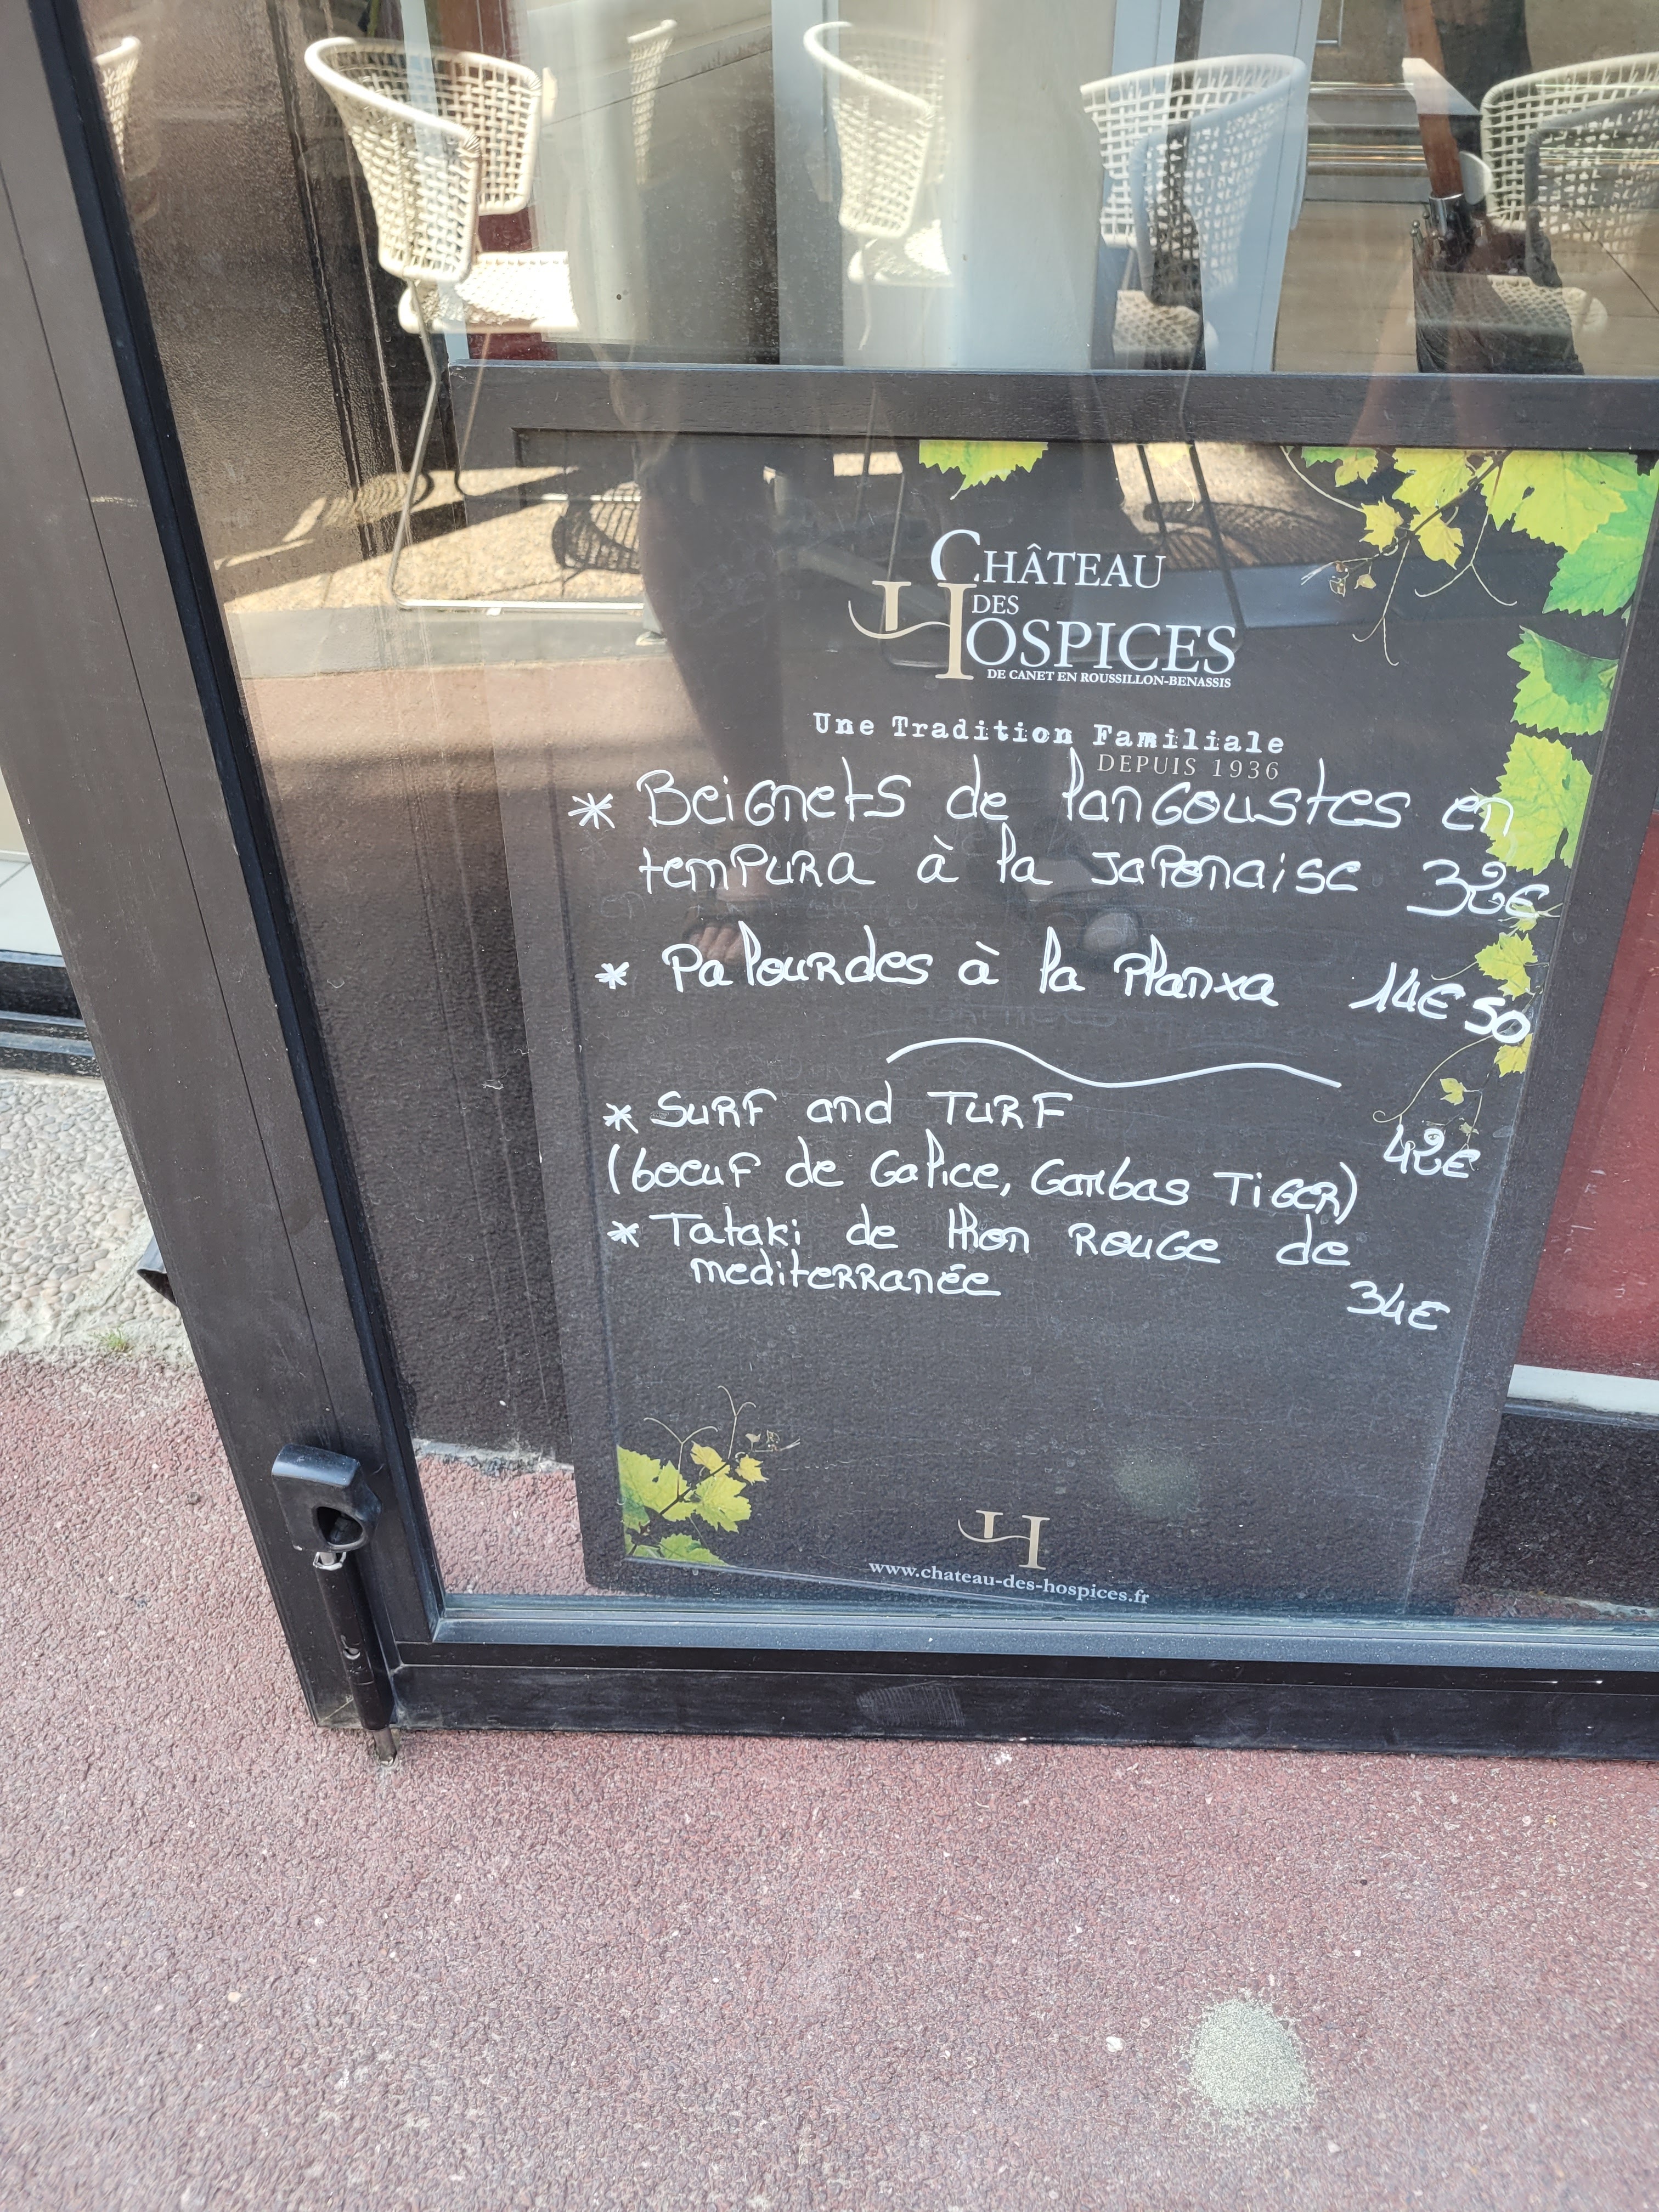 CHÂTEAU
DES
HOSPICES
DE CANET EN ROUSSILLON-BENASSIS
Une Tradition Familiale
DEPUIS 1936
* Beignets de langoustes en
tempura à la Japonaise 32€
* Palourdes à la Planxa 14€50
* Surf and Turf
42€
(boeuf de Galice, Gambas Tiger)
* Tataki de thon rouge de
mediterranée
34€
H
www.chateau-des-hospices.fr